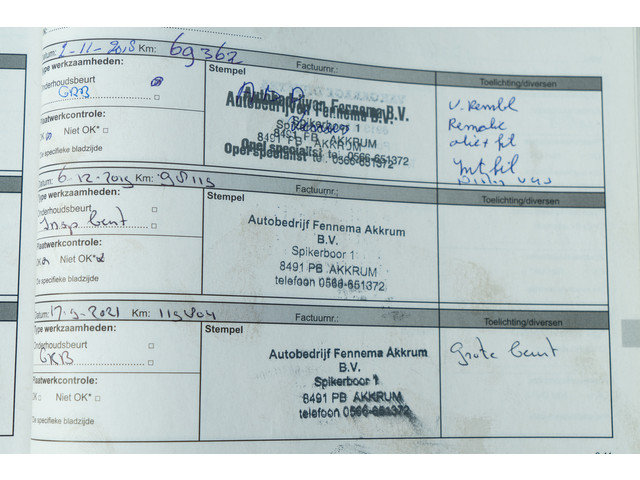 Datum: 2-11-2018 Km: 69362
Type werkzaamheden:
Onderhoudsbeurt
GRB
Plaatwerkcontrole:
OK Niet OK*
De specifieke bladzijde
Stempel
Factuurnr.:
Autobedrijf Fennema B.V.
Spikerboor
8491 PB AKKRUM
Opel specialist tel. 0566-651372
Toelichting/diversen
Remolie
Datum: 6-12-2019 Km:
Type werkzaamheden:
Onderhoudsbeurt
Insp beurt
Plaatwerkcontrole:
OK Niet OK*
De specifieke bladzijde
Stempel
Factuurnr.:
Autobedrijf Fennema Akkrum
B.V.
Spikerboor 1
8491 PB AKKRUM
telefoon 0566-651372
Toelichting/diversen
Datum: 17-9-2021 Km:
Type werkzaamheden:
Onderhoudsbeurt
GRB
Plaatwerkcontrole:
OK Niet OK*
De specifieke bladzijde
Stempel
Factuurnr.:
Autobedrijf Fennema Akkrum
B.V.
Spikerboor 1
8491 PB AKKRUM
telefoon 0566-651372
Toelichting/diversen
Grote beurt